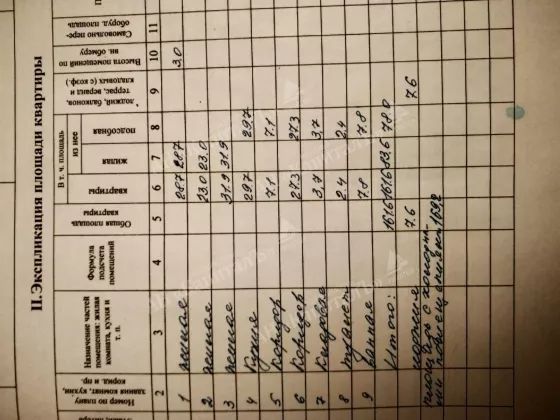 II. Экспликация площади квартиры
Номер по плану: здания комнат, кухни, корид. и пр.
Назначение частей помещения: жилая комната, кухня и т. п.
Формула подсчета помещений
Общая площадь квартиры
В т. ч. площадь
квартиры
из нее
жилая
подсобная
лоджий, балконов, террас, веранд и кладовых (с коэф.)
Высота помещений по вн. обмеру
Самовольно пере- оборуд. площадь
2 3 4 5 6 7 8 9 10 11
1 жилая 28.7 28.7 3,0
2 жилая 23.0 23.0
3 жилая 31.9 31.9
4 Кухня 29.7 29.7
5 Коридор 7.1 7.1
6 Коридор 27.3 27.3
7 Кладовая 3,7 3,7
8 туалет 2.4 2.4
9 ванная 7.8 7.8
Итого: 161.6 161.6 83.6 78.0
лоджия 7.6 7.6
площадь с холодны-
ми помещениями 169.2